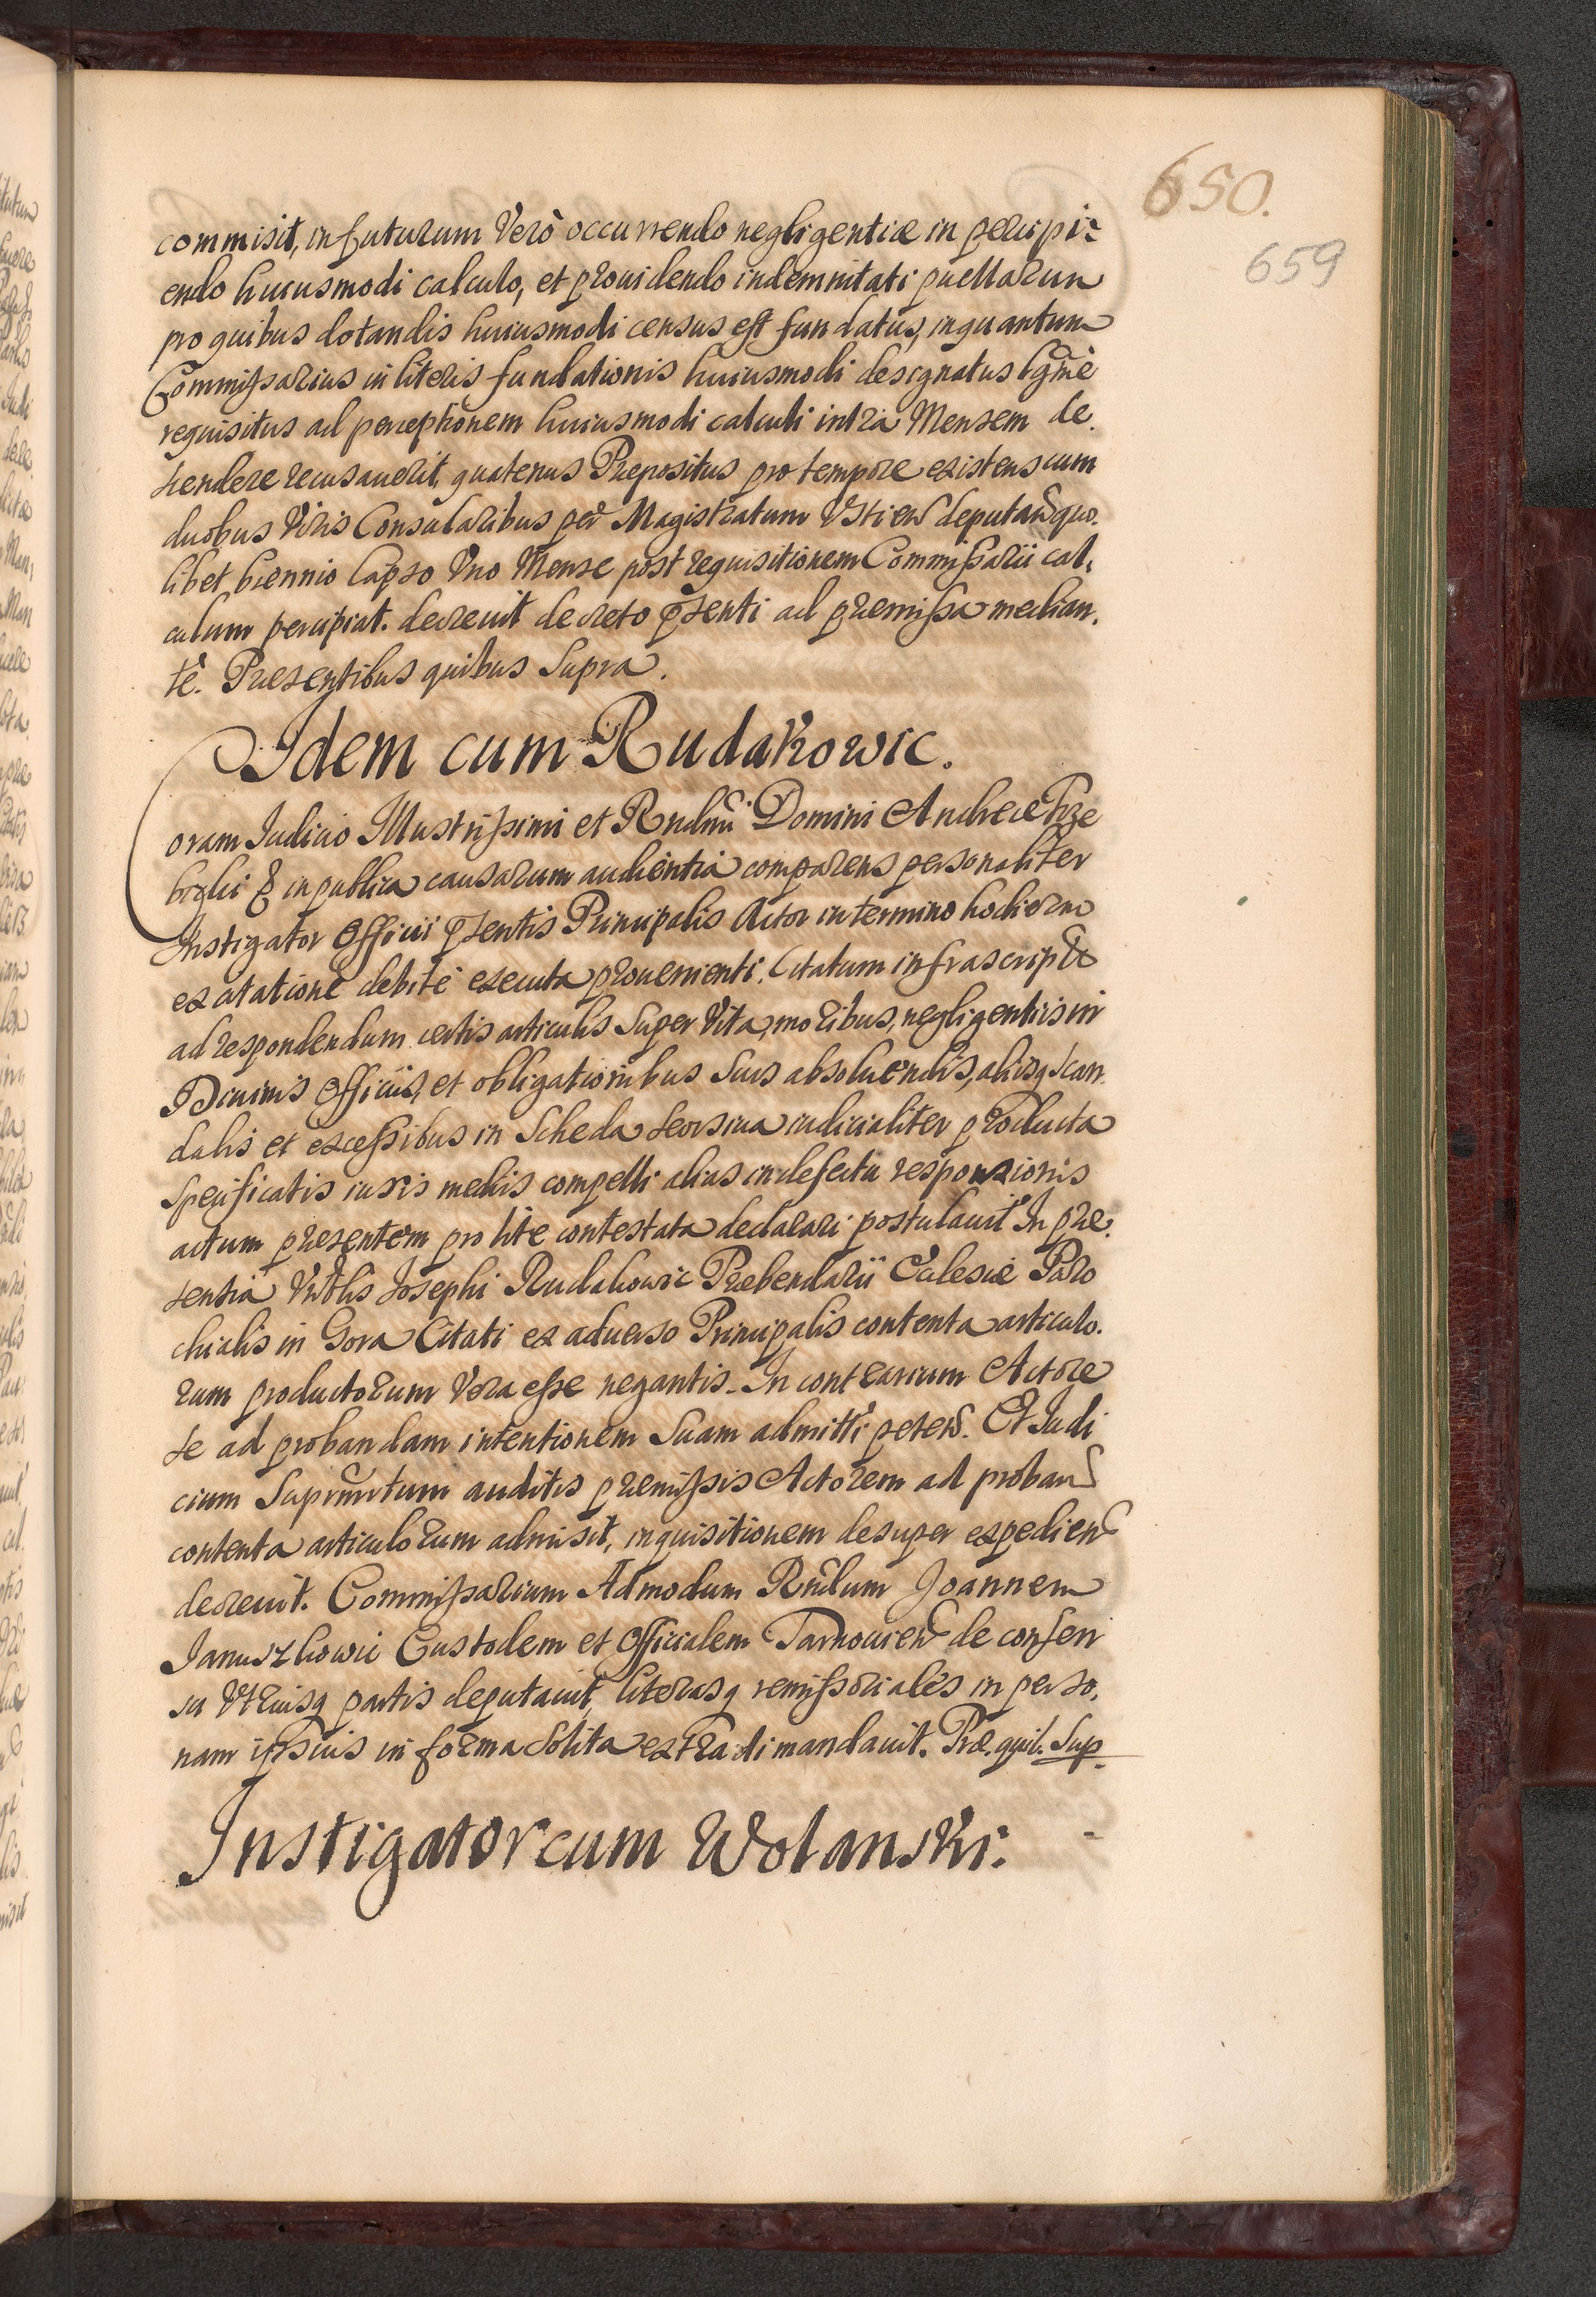 650.
659
commisit, in futurum Verò occurrendo negligentiæ in percipi-
endo huiusmodi calculo, et prouidendo indemnitati puellarum
pro quibus dotandis huiusmodi census est fundatus, inquantum
Commissarius in literis fundationis huiusmodi designatus
requisitus ad perceptionem huiusmodi calculi intra Mensem de.
scendere recusauerit, quatenus Præpositus pro tempore existens cum
duobus Viris Consularibus per Magistratum deputañ quo.
libet biennio lapso Vno Mense post requisitionem Commissarii cal.
culum percipiat. decreuit decreto præmissa median.
te. Præsentibus quibus Supra.
Idem cum Rudakowic.
Coram Iudicio Illustrissimi et Rndmi Domini Andreæ Trze
bizki & in publica causarum audientia comparens personaliter
Instigator Officii Principalis Actor in termino hodierno
ex citatione debitè executa proueniente. Citatum infrascriptũ
ad respondendum certis articulis Super Vita, moribus, negligentiis in
Diuinis Officiis, et obligationibus Suis absoluendis, aliisq. scan.
dalis et excessibus in Scheda seorsiua iudicialiter producta
Specificatis iuris mediis compelli alias in defectu responsionis
actum præsentem pro lite contestata declarari postulauit In præ.
sentia Josephi Rudakowic Præbendarii Ecclesiæ Paro
chialis in Gora Citati ex aduerso Principalis contenta articulo.
rum productorum Vera esse negantis. In contrarium Actore
se ad probandam intentionem Suam admitti peteñ. Et Iudi
cium auditis præmissis Actorem ad proband
contenta articulorum admisit, inquisitionem desuper expedien
decreuit. Commissarium Admodum Rndum Joannem
Januszkowic Custodem et Officialem Tarnouien de consen
su Vtriusq partis deputauit, literasq remissoriales in perso.
nam ipsius in forma Solita extradi mandauit. Præ. quib. Sup.
Instigator cum Wolanski.